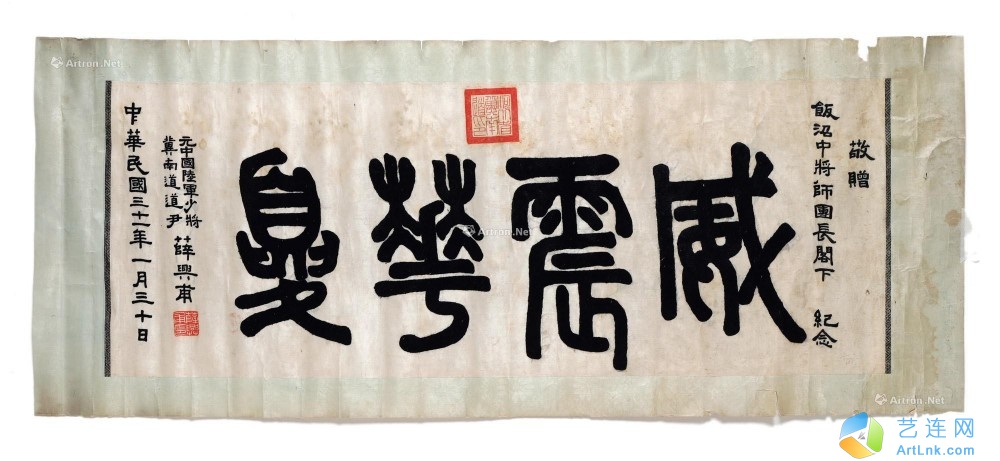 敬贈
飯沼中將師團長閣下 紀念
威震華夏
元中國陸軍少將
冀南道道尹 薛興甫
中華民國三十一年一月三十日
Artron.Net
Artron.Net
Artron.Net
艺连网
ArtLnk.com